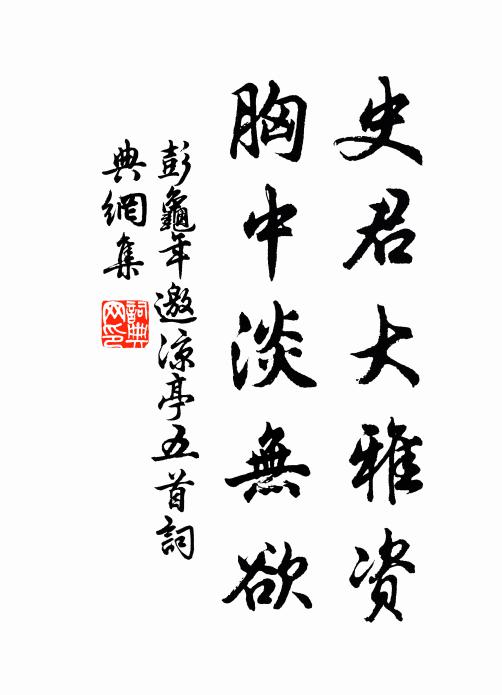 史君大雅资
胸中淡無欲
彭龜年邀涼亭五首詞
典網集
詞典網印